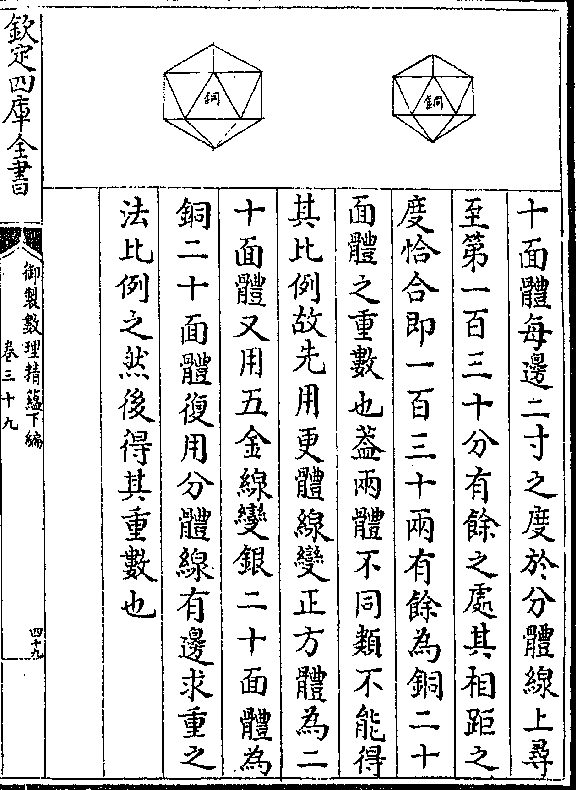 十面體每邊二寸之度於分體線上尋
至第一百三十分有餘之處其相距之
度恰合即一百三十兩有餘為銅二十
面體之重數也葢兩體不同類不能得
其比例故先用更體線變正方體為二
十面體又用五金線變銀二十面體為
銅二十面體復用分體線有邊求重之
法比例之然後得其重數也
銅
銅
欽定四庫全書
御製數理精蘊下編
卷三十九
四十九